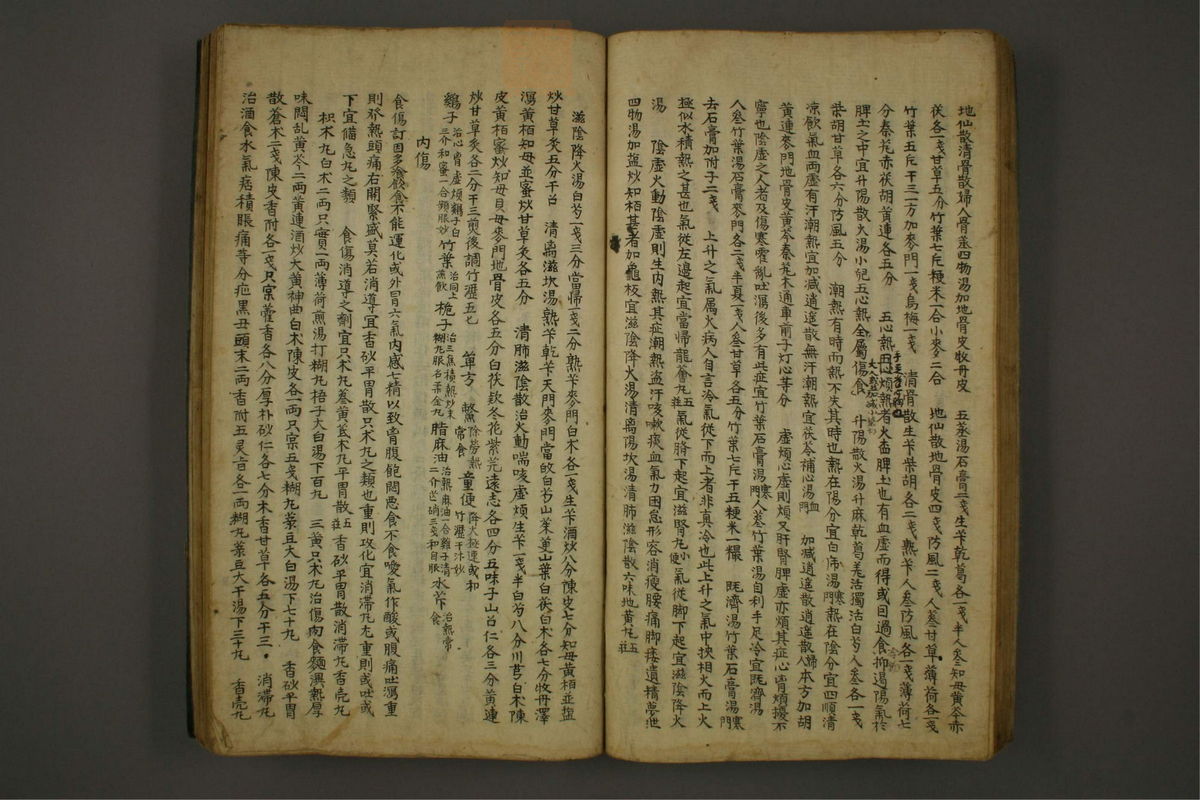 地仙散清骨散婦人骨蒸四物湯加地骨皮牧丹皮　五蒸湯石膏二戔生芐乾葛各一戔半人參知母黃芩赤
茯各一戔甘草五分竹葉七斤粳米一合小麥二合　地仙散地骨皮四戔防風二戔人參甘草薄荷各一戔
竹葉五斤干三一方加麥門一戔烏梅一戔　清骨散生芐柴胡各二戔熟芐人參防風各一戔薄荷七
分秦芃赤茯胡黃連各五分　五心熱煩熱者火畓脾土也有血虛而得或因過食抑遏陽氣於
手王者心病也
大人參加減小柴胡
脾土之中宜升陽散火湯小兒五心熱屬傷食　升陽散火湯升麻乾葛羌活獨活白芍人參各一戔
柴胡甘草各六分防風五分　潮熱有時而熱不失其時也熱在陽分宜白虎湯寒門熱在陰分宜四順清
凉飮氣血兩虛有汗潮熱宜加减逍遙散無汗潮熱宜茯苓補心湯血門　加减逍遙散逍遙散本方加胡
黃連麥門地骨皮黃芩秦芃木通車前子灯心等分　虛煩心虛則煩又肝腎脾虛亦煩其症心胷煩擾不
寧也陰虛之人者及傷寒霍亂吐瀉後多有此症宜竹葉石膏湯寒門人參竹葉湯自利手足冷宜旣濟湯
人參竹葉湯石膏麥門各二戔半夏一戔人參甘草各五分竹葉七斤干五粳米一撮　旣濟湯竹葉石膏湯寒門
去石膏加附子二戔　上升之氣属火病人自言冷氣從下而上者非真冷也此上升之氣中挾相火而上火
極似水積熱之甚也氣從左邊起宜當帰龍薈丸五莊氣從脐下起宜滋腎丸小便氣從脚下起宜滋陰降火
湯　陰虛火動陰虛則生內熱其症潮熱盜汗咳嗽痰血氣力困怠形容消瘦腰痛脚痿遺精夢泄
四物湯加塩炒知栢甚者加龜板宜滋陰降火湯清离陽坎湯清肺滋陰散六味地黃丸五莊
滋陰降火湯白芍一戔三分當帰一戔二分熟芐麥門白朮各一戔生芐酒炒八分陳皮七分知母黃栢並塩
炒甘草炙五分干召　清离滋坎湯熟芐乾芐天門麥門當皈白芍山茱萸山葉白茯白朮各七分牧丹澤
瀉黃栢知母並蜜炒甘草炙各五分　清肺滋陰散治火動喘咳虛煩生芐一戔半白芍八分川芎白朮陳
皮黃栢蜜炒知母貝母麥門地骨皮各五分白茯欵冬花紫芫遠志各四分五味子山召仁各三分黃連
炒甘草炙各二分干三煎後調竹瀝五匕　單方　鱉除勞熱常食　童便降火極速或和竹瀝干汁妙
鷄子治心胷虛煩鷄子白三介和蜜一合頻服妙　竹葉治同上煮飮　梔子治三焦積熱炒末糊丸服名柔金丸　脂麻油治熱麻油一合雞子清二介芒硝三戔和服　水芐治熱常食
內傷
食傷訂因多飧飮食不能運化或外冐六氣內感七精以致胃腹飽悶悪食不食噯氣作酸或腹痛吐瀉重
則發熱頭痛右關緊盛莫若消導宜香砂平胃散只朮丸之類也重則攻化宜消滯丸尤重則或吐或
下宜備急丸之類　食傷消導之劑宜只朮丸參黃芪朮丸平胃散五莊香砂平胃散消滯丸香壳丸
枳朮丸白朮二兩只實一兩薄荷煎湯打糊丸梧子大白湯下百丸　三黃只朮丸治傷肉食麵濕熱厚
味悶亂黃芩二兩黃連酒炒大黃神曲白朮陳皮各一兩只宗五戔糊丸菉豆大白湯下七十丸　香砂平胃
散蒼朮二戔陳皮香附各一戔只宗藿香各八分厚朴砂仁各七分木香甘草各五分干三　消滯丸
治酒食水氣痞積脹痛等分疤黑丑頭末二兩香附五灵旨各一兩糊丸菉豆大干湯下三十丸　香壳丸